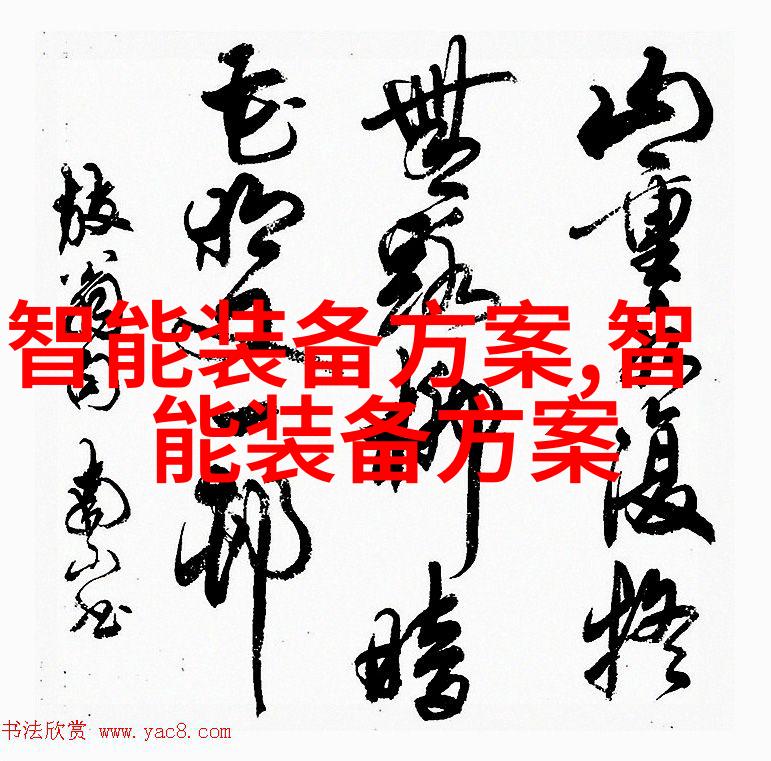 山重水復疑
無路柳暗
花明又一邨
放翁句
智能装备方案,智
能装备方案
书法欣赏 www.yac8.com